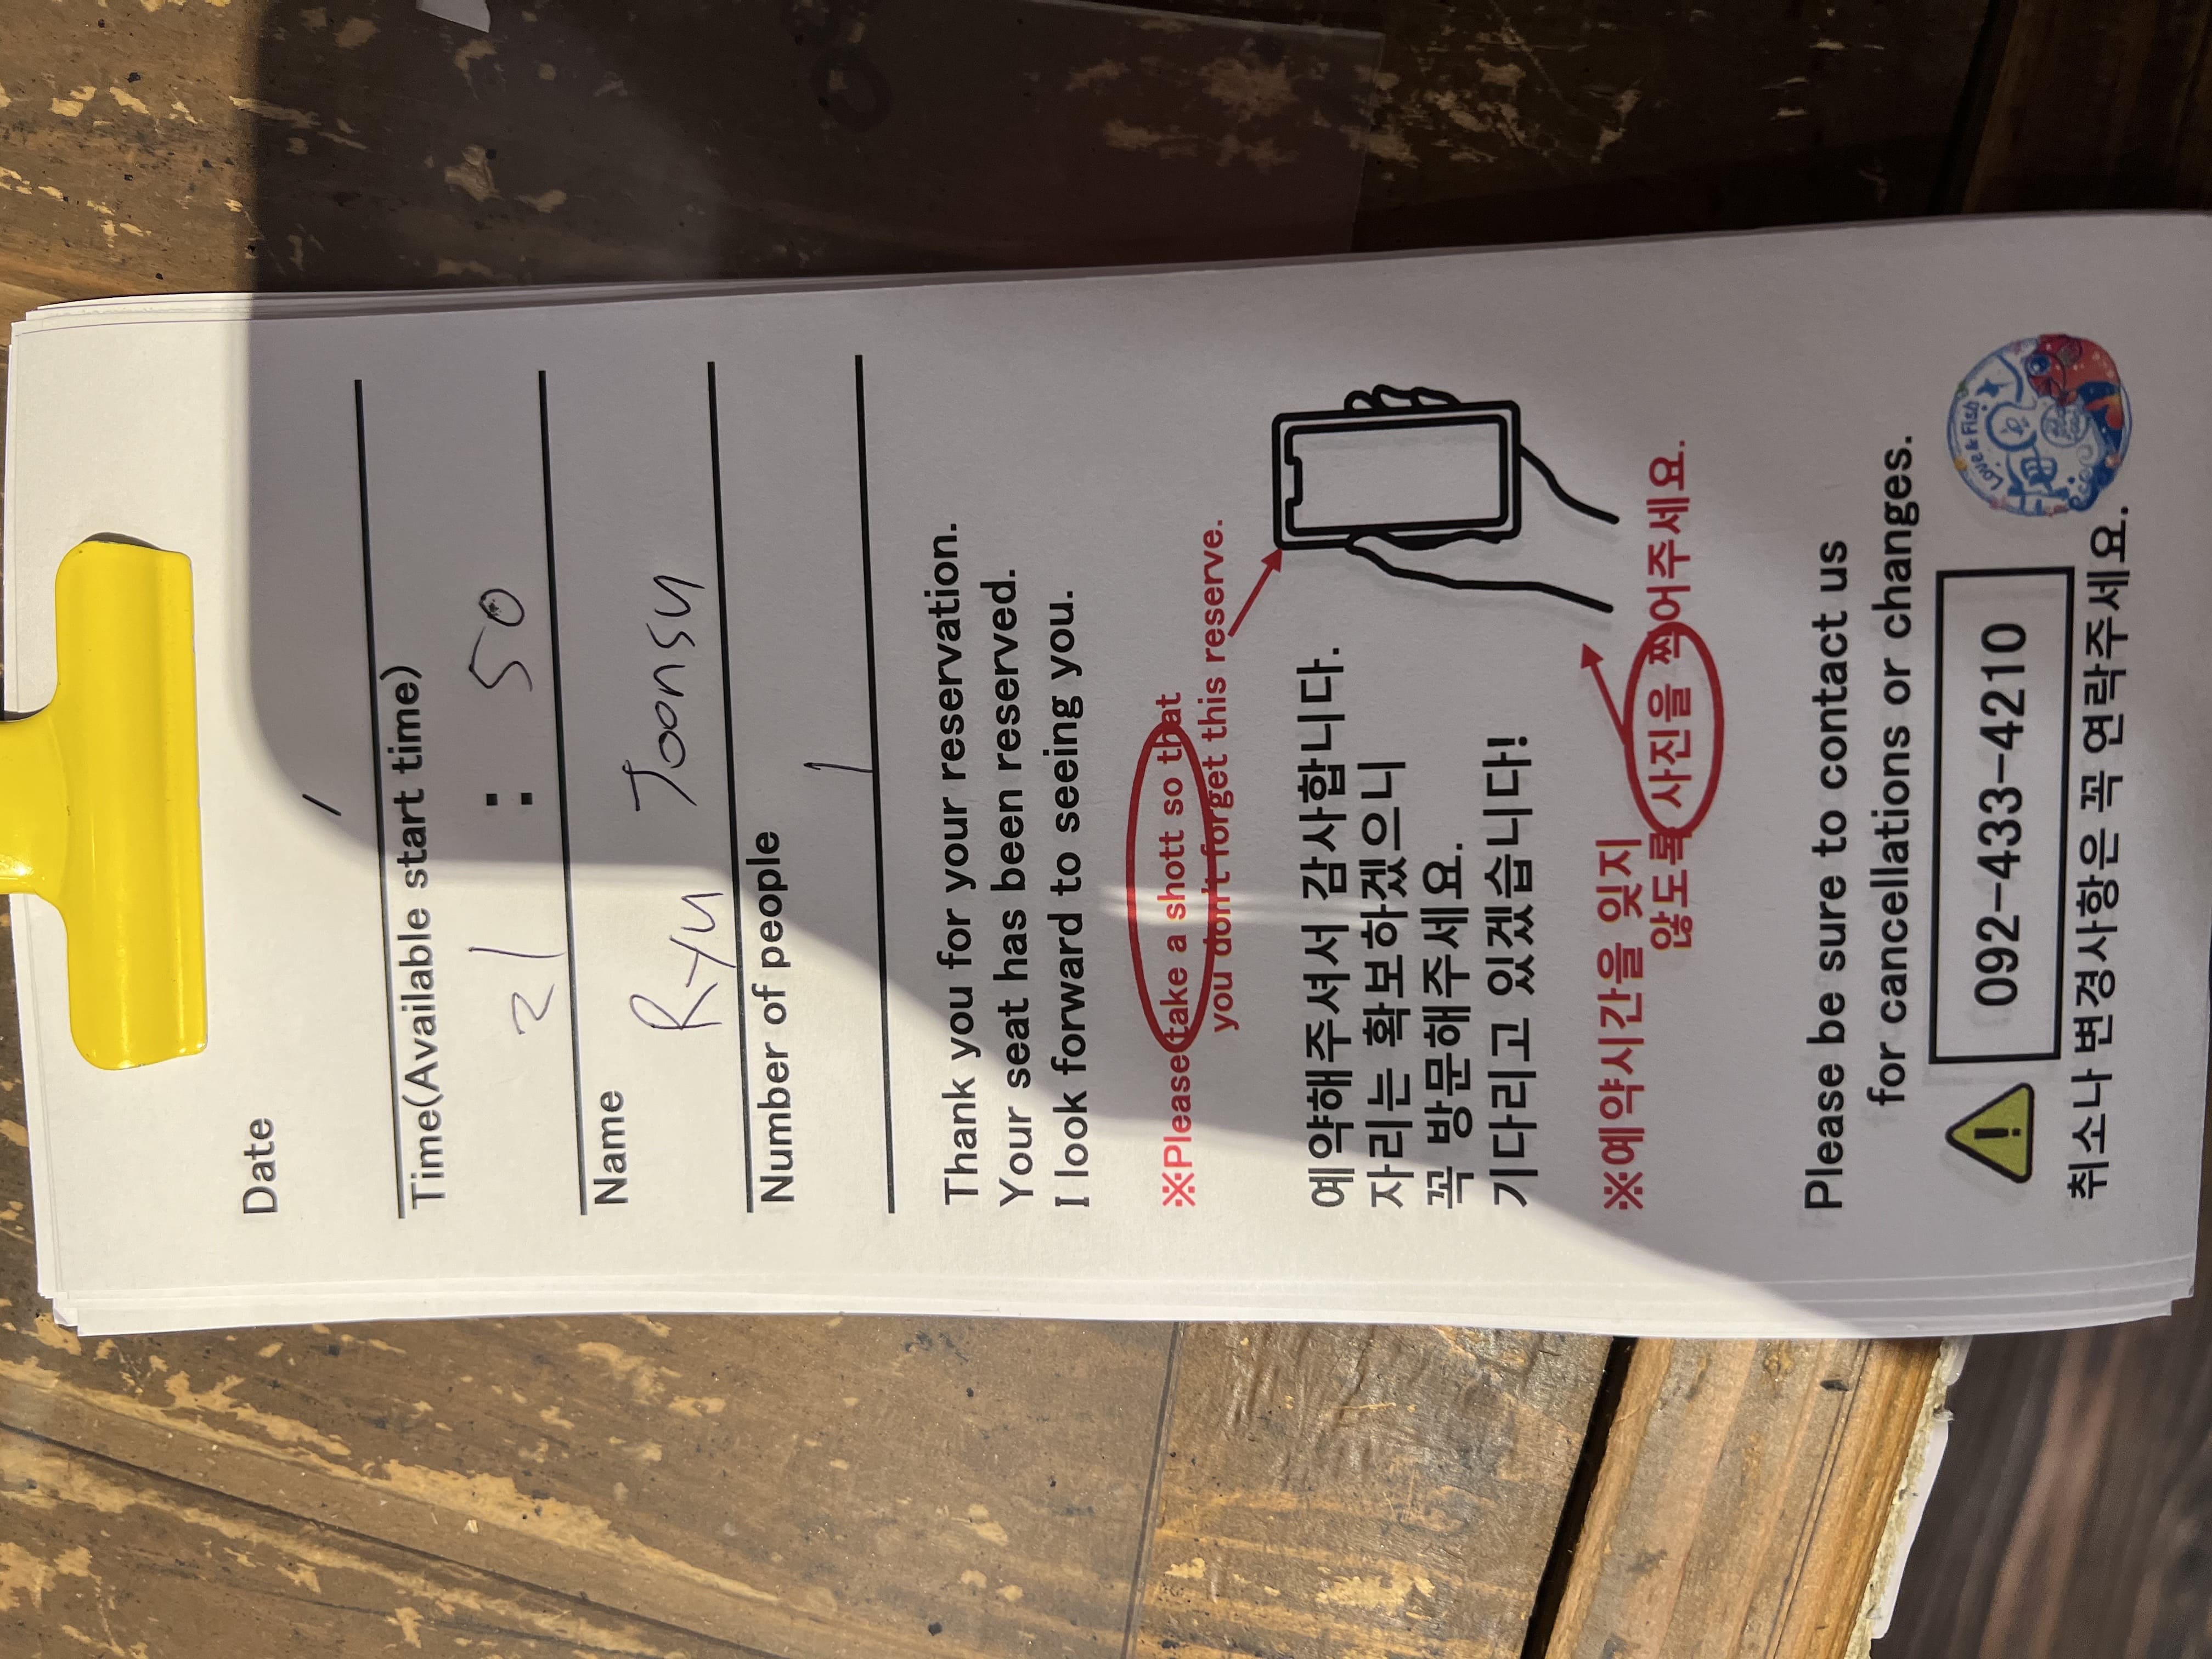 Date
/
Time(Available start time)
21 : 50
Name
Ryu Joonsu
Number of people
1
Thank you for your reservation.
Your seat has been reserved.
I look forward to seeing you.
※Please take a shott so that
you don't forget this reserve.
예약해주셔서 감사합니다.
자리는 확보하겠으니
꼭 방문해주세요.
기다리고 있겠습니다!
※예약시간을 잊지
않도록 사진을 찍어주세요.
Please be sure to contact us
for cancellations or changes.
092-433-4210
Love & Fish
취소나 변경사항은 꼭 연락주세요.